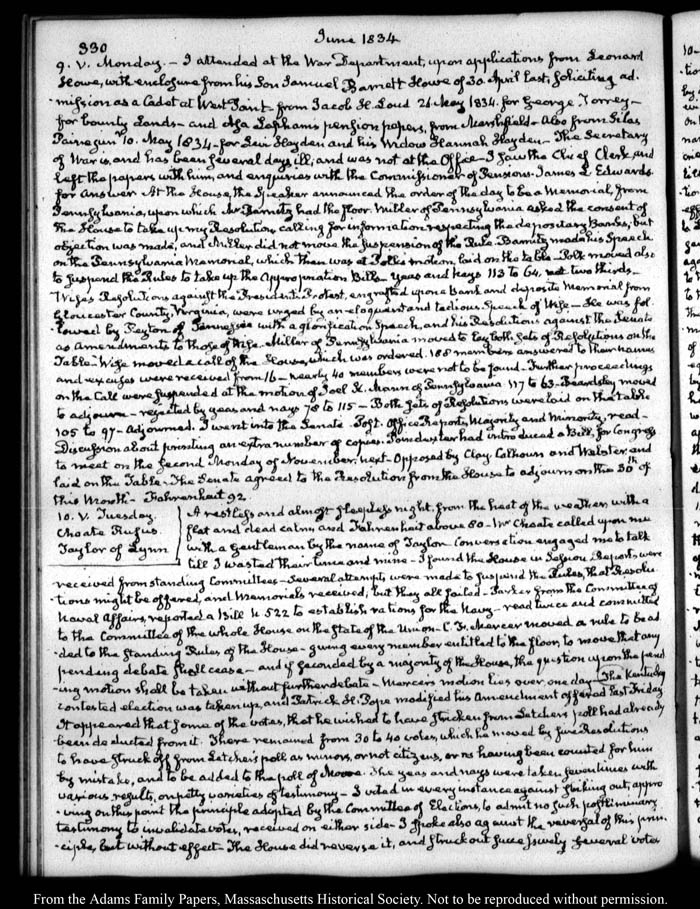 330
June 1834
9. V. Monday. – I attended at the War Department, upon applications from Leonard
Howe, with enclosure from his Son Samuel Barrett Howe of 30 April last, soliciting ad-
-mission as a Cadet at West Point – from Jacob H. Loud 26 May 1834. for George Torrey –
for bounty Lands – and Asa Lapham's pension papers, from Marshfield – Also from Silas
Paine jun.r 10. May 1834 – for Levi Hayden and his Widow Hannah Hayden – The Secretary
of War is, and has been several days ill, and was not at the Office – I saw the Chief Clerk, and
left the papers with him, and enquiries with the Commissioner of Pensions. James L. Edwards
for answer. At the House, the Speaker announced the order of the day to be a Memorial, from
Pennsylvania, upon which Mr Barnitz had the floor. Miller of Pennsylvania asked the consent of
the House to take up my Resolution, calling for information respecting the depositary Banks, but
objection was made, and Miller did not move the suspension of the Rule. Barnitz made his Speech
on the Pennsylvania Memorial, which then was at Polk's motion, laid on the table – Polk moved also
to suspend the Rules to take up the Appropriation Bills – yeas and nays 113 to 64, not two thirds –
Wise's Resolutions against the President's Protest, engrafted upon a Bank and deposite Memorial from
Gloucester County, Virginia, were urged by an eloquent and tedious Speech of Wise – He was fol-
-lowed by Peyton of Tennessee with a glorification Speech, and his Resolutions against the Senate
as Amendments to those of Wise. Miller of Pennsylvania moved to lay both Sets of Resolutions on the
Table – Wise moved a call of the House, which was ordered. 188 members answered to their names
and excuses were received from 16 – nearly 40 members were not to be found – Further proceedings
on the Call were suspended at the motion of Joel K. Mann of Pennsylvania 117 to 63 – Beardsley moved
to adjourn – rejected by yeas and nays 78 to 115 – Both Sets of Resolutions were laid on the table
105 to 97 – Adjourned. I went into the Senate. Post-Office Report, Majority and Minority, read –
Discussion about printing an extra number of copies. Poindexter had introduced a Bill, for Congress
to meet on the second Monday of November next – Opposed by Clay, Calhoun and Webster, and
laid on the Table – The Senate agreed to the Resolution from the House to adjourn on the 30th of
this Month – Fahrenheit 92.
10. V. Tuesday.
Choate Rufus.
Taylor of Lynn
A restless and almost sleepless night, from the heat of the weather, with a
flat and dead calm, and Fahrenheit above 80 – Mr Choate called upon me
with a Gentleman by the name of Taylor. Conversation engaged me to talk
till I wasted their time and mine – I found the House in Session. Reports were
received from standing Committees – Several attempts were made to suspend the Rules, that Resolu-
-tions might be offered, and Memorials received, but they all failed – Parker from the Committee of
Naval Affairs, reported a Bill H. 522 to establish rations for the Navy – read twice and committed
to the Committee of the whole House on the State of the Union – C. F. Mercer moved a rule to be ad-
-ded to the standing Rules of the House – giving every member entitled to the floor, to move that any
pending debate shall cease – and if seconded by a majority of the House, the question upon the pend-
-ing motion shall be taken without further debate – Mercer's motion lies over one day – The Kentucky
contested election was taken up, and Patrick H. Pope modified his Amendment offered last Friday
It appeared that some of the votes, that he wished to have stricken from Letcher's poll had already
been deducted from it. There remained from 30 to 40 votes, which he moved by five Resolutions
to have struck off from Letcher's poll as minors, or not citizens, or as having been counted for him
by mistake, and to be added to the poll of Moore. The yeas and nays were taken seven times with
various results, on petty varieties of testimony – I voted in every instance against striking out, appro-
-ving on this point the principle adopted by the Committee of Elections, to admit no such posthumous
testimony to invalidate votes, received on either side – I spoke also against the reversal of this prin-
-ciple, but without effect – The House did reverse it, and struck out successively several votes
From the Adams Family Papers, Massachusetts Historical Society. Not to be reproduced without permission.